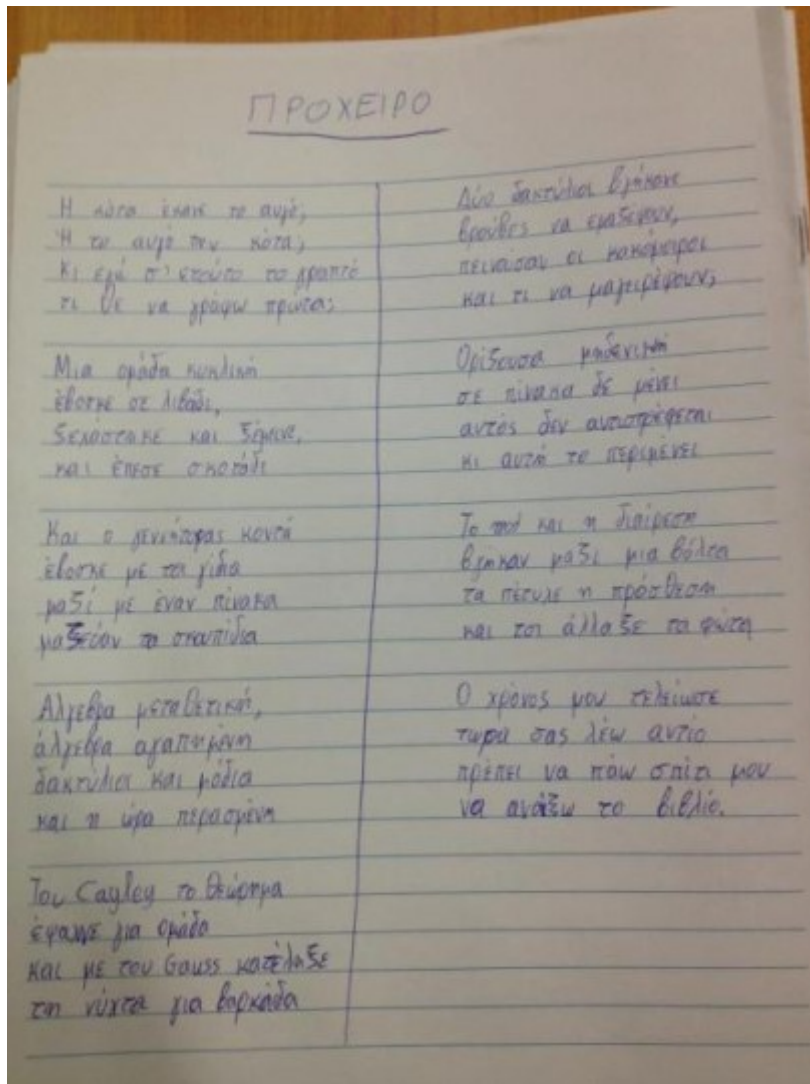 ΠΡΟΧΕΙΡΟ
Η κότα έκανε το αυγό;
Ή το αυγό την κότα;
Κι εγώ σ' ετούτο το γραπτό
τι θε να γράψω πρώτα;
Μια ομάδα κυκλική
έβοσκε σε λιβάδι,
ξεχάστηκε και ξέμεινε,
και έπεσε σκοτάδι
Και ο γεννήτορας κοντά
έβοσκε με τα γίδια
μαζί με έναν πίνακα
μαζεύαν τα σκουπίδια
Άλγεβρα μεταθετική,
άλγεβρα αγαπημένη
δακτύλιοι και μόδια
και η ώρα περασμένη
Του Cayley το θεώρημα
έψαχνε για ομάδα
και με του Gauss κατέληξε
τη νύχτα για βαρκάδα
Δύο δακτύλιοι βγήκανε
βρούβες να εμαζέψουν,
πεινάσαν οι κακόμοιροι
και τι να μαγειρέψουν;
Ορίζουσα μηδενική
σε πίνακα δε μένει
αυτός δεν αντιστρέφεται
κι αυτή το περιμένει
Το mod και η διαίρεση
βγήκαν μαζί μια βόλτα
τα πέτυχε η πρόσθεση
και τσι άλλαξε τα φώτα
Ο χρόνος μου τελείωσε
τώρα σας λέω αντίο
πρέπει να πάω σπίτι μου
να ανοίξω το βιβλίο.